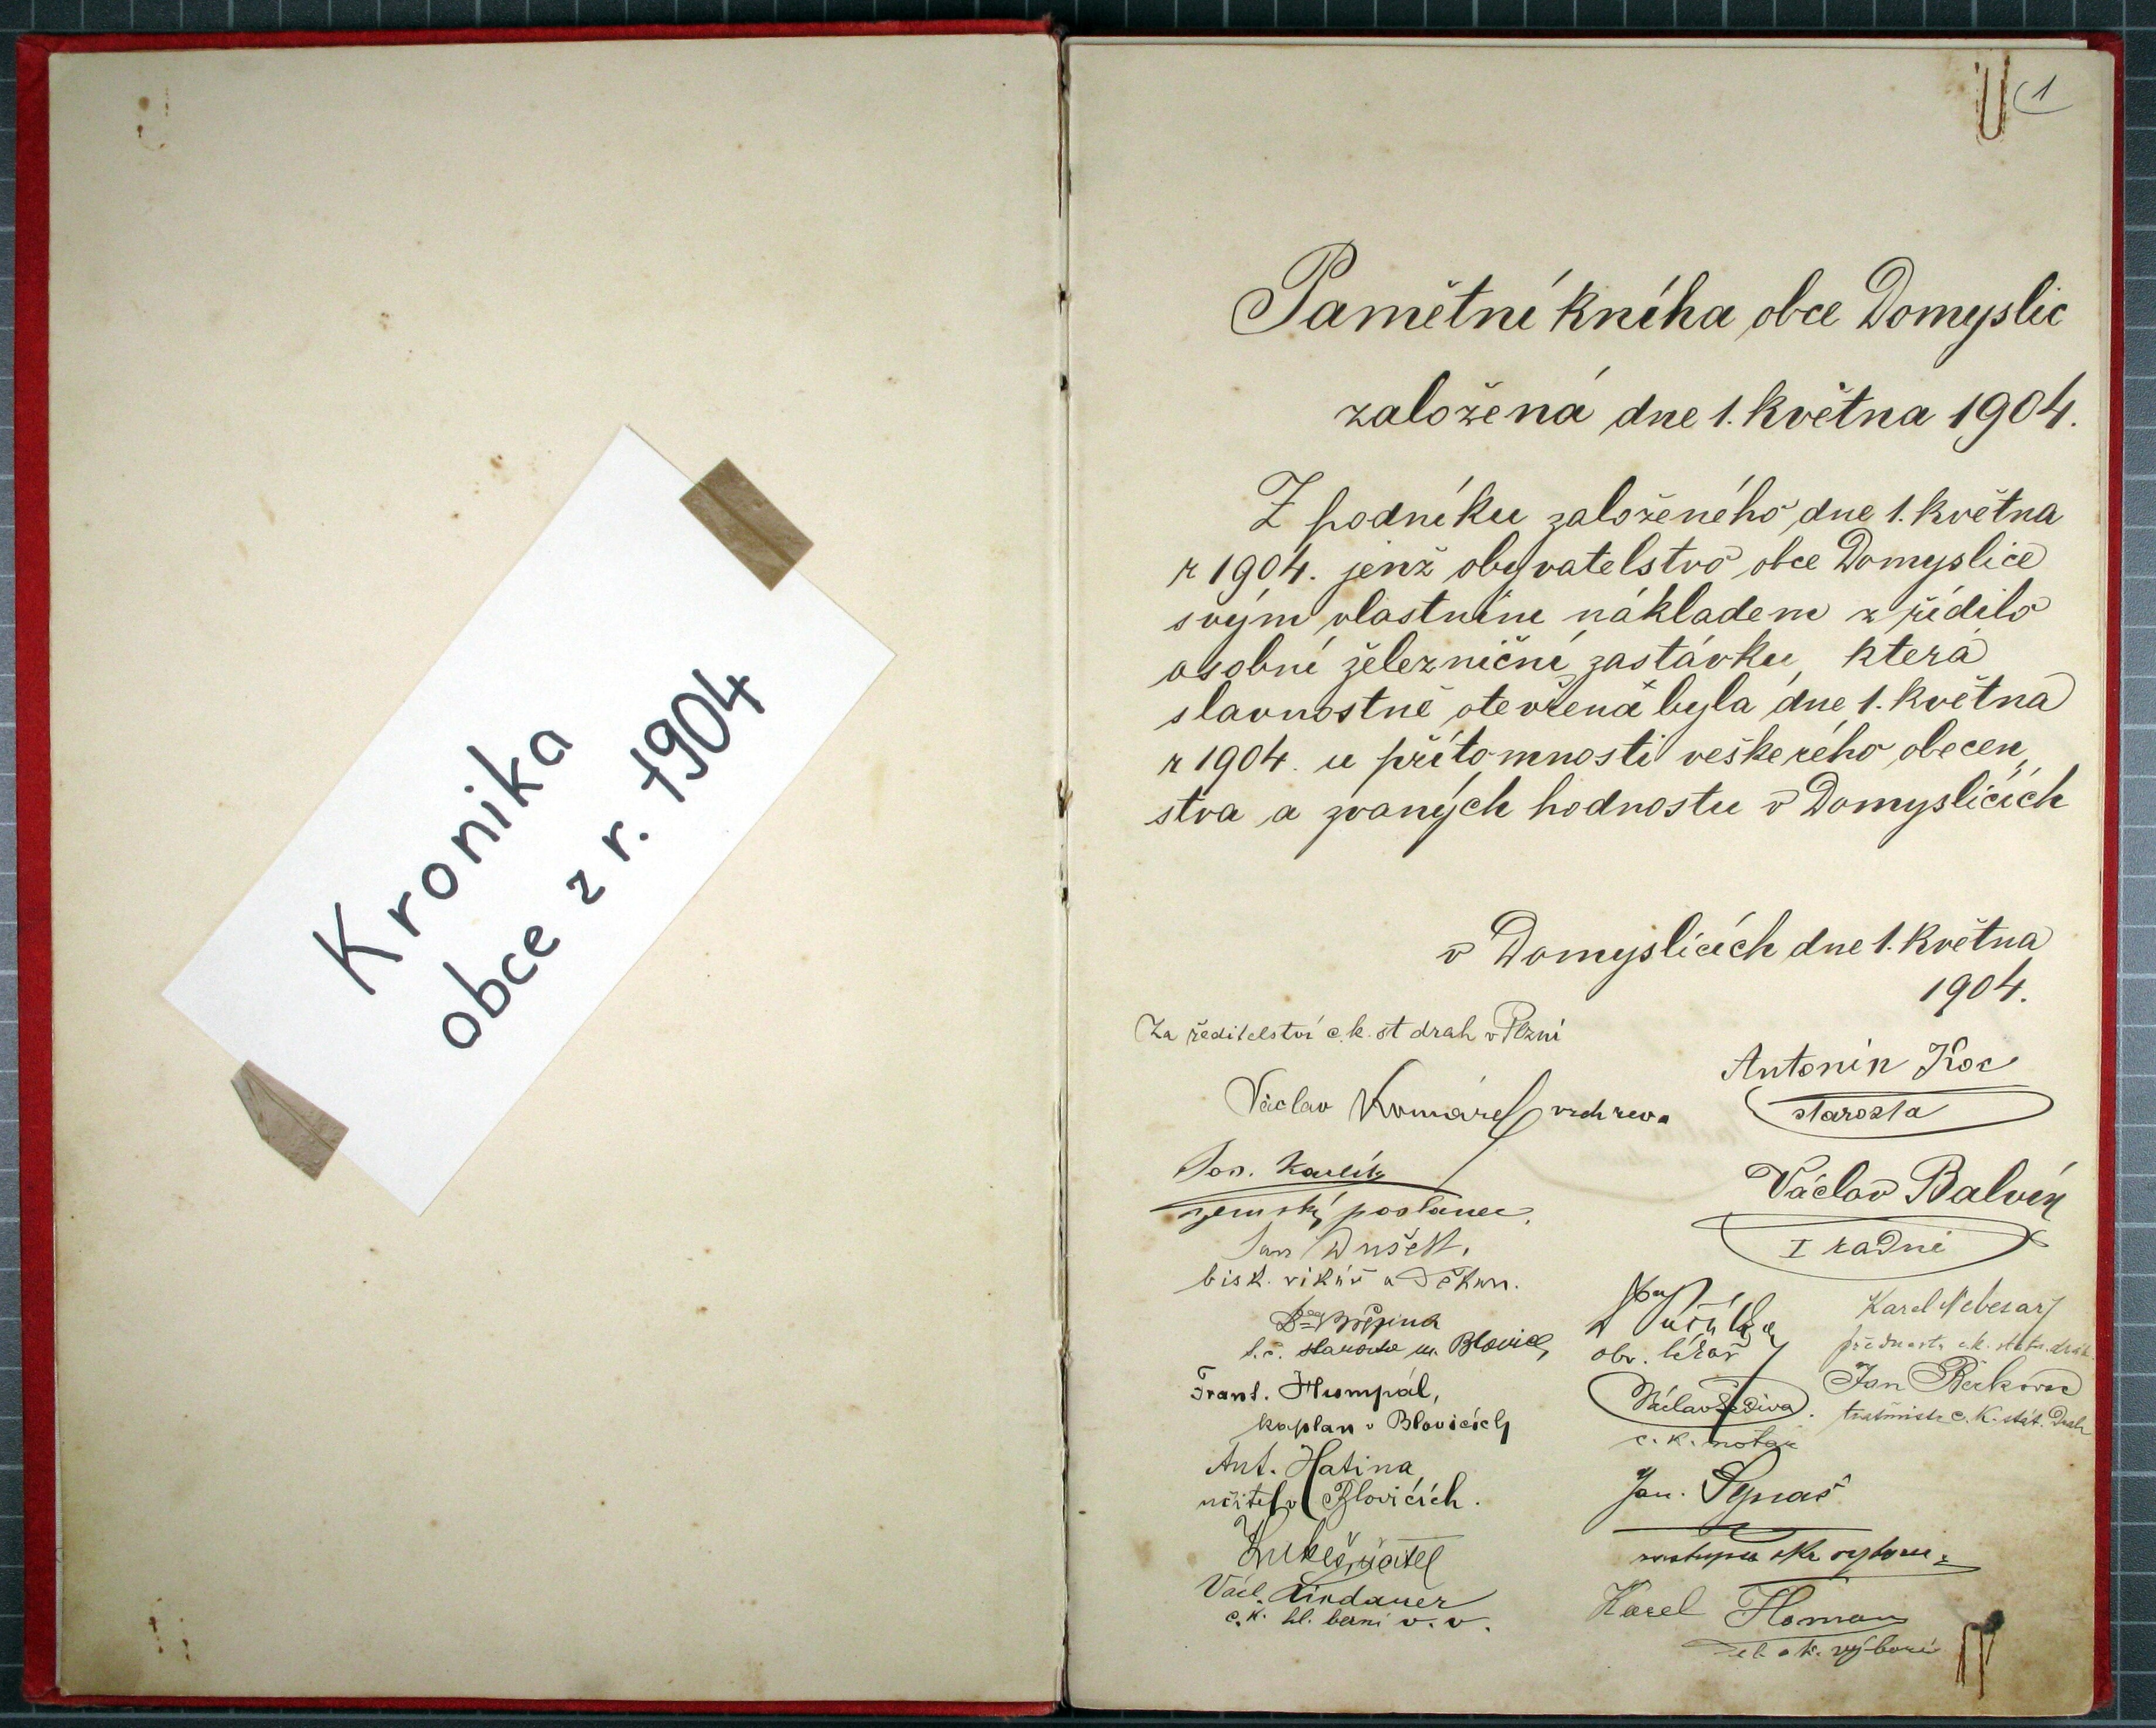 Kronika
obce z r. 1904
1
Pamětní kniha obce Domyslic
založená dne 1. května 1904.
Z podniku založeného dne 1. května
r 1904. jenž obyvatelstvo obce Domyslice
svým vlastním nákladem zřídilo
osobní železniční zastávku, která
slavnostně otevřená byla dne 1. května
r 1904. u přítomnosti veškerého obecen„
stva a zvaných hodnostu v Domyslicích
v Domyslicích dne 1. května
1904.
Za ředitelství c. k. st drah v Plzni
Václav Komárek vrch rev.
Antonín Koc
starosta
Jos. Karlík
zemský poslanec.
Václav Balvín
I radní
Jan
bisk. vikář a děkan.
starosta m. Blovic
obv. lékař
Karel Nebesář
přednosta c. k. stát. drah
Frant. Humpál,
kaplan v Blovicích
Václav Šediva.
c. k. notář
Jan
c. k. stát. Drah
Ant. Hatina
učitel v Blovicích.
Jan.
Lukeš, učitel
zástupce okr výboru.
Václ. Lindauer
c. k. hl. berní v. v.
Karel Homan
ok. výboru